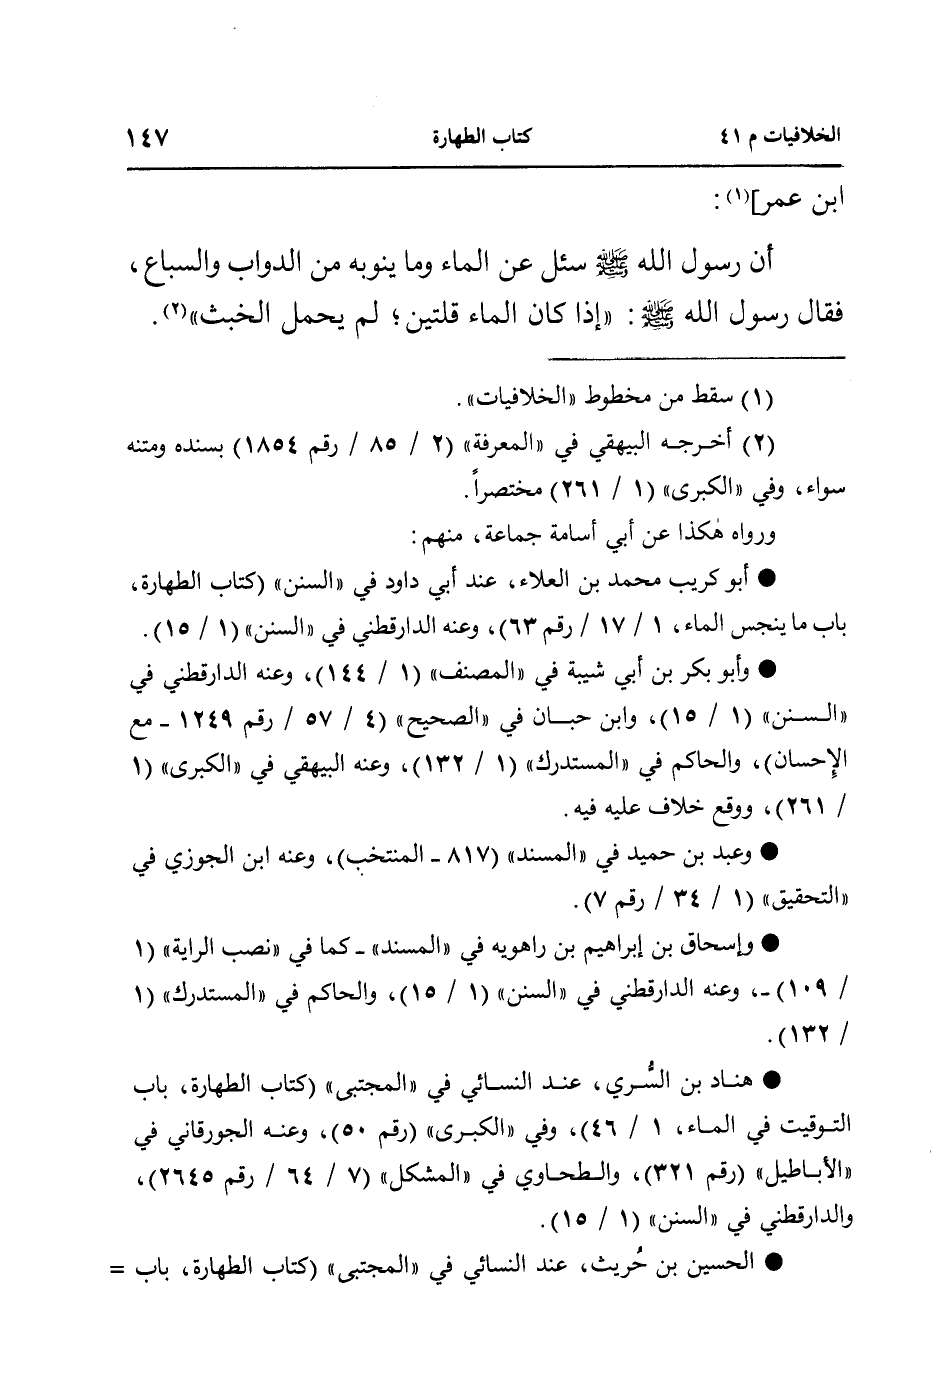 الخلافيات م ٤١ كتاب الطهارة ١٤٧
ابن عمر](١) :
أن رسول الله ﷺ سئل عن الماء وما ينوبه من الدواب والسباع،
فقال رسول الله ﷺ : «إذا كان الماء قلتين؛ لم يحمل الخبث»(٢).
(١) سقط من مخطوط «الخلافيات».
(٢) أخرجه البيهقي في «المعرفة» (٢ / ٨٥ / رقم ١٨٥٤) بسنده ومتنه
سواء، وفي «الكبرى» (١ / ٢٦١) مختصراً.
ورواه هٰكذا عن أبي أسامة جماعة، منهم:
● أبو كريب محمد بن العلاء، عند أبي داود في «السنن» (كتاب الطهارة،
باب ما ينجس الماء، ١ / ١٧ / رقم ٦٣)، وعنه الدارقطني في «السنن» (١ / ١٥).
● وأبو بكر بن أبي شيبة في «المصنف» (١ / ١٤٤)، وعنه الدارقطني في
«السنن» (١ / ١٥)، وابن حبان في «الصحيح» (٤ / ٥٧ / رقم ١٢٤٩ ـ مع
الإحسان)، والحاكم في «المستدرك» (١ / ١٣٢)، وعنه البيهقي في «الكبرى» (١
/ ٢٦١)، ووقع خلاف عليه فيه.
● وعبد بن حميد في «المسند» (٨١٧ ـ المنتخب)، وعنه ابن الجوزي في
«التحقيق» (١ / ٣٤ / رقم ٧).
● وإسحاق بن إبراهيم بن راهويه في «المسند» ـ كما في «نصب الراية» (١
/ ١٠٩) ـ، وعنه الدارقطني في «السنن» (١ / ١٥)، والحاكم في «المستدرك» (١
/ ١٣٢).
● هناد بن السُّري، عند النسائي في «المجتبى» (كتاب الطهارة، باب
التوقيت في الماء، ١ / ٤٦)، وفي «الكبرى» (رقم ٥٠)، وعنه الجورقاني في
«الأباطيل» (رقم ٣٢١)، والطحاوي في «المشكل» (٧ / ٦٤ / رقم ٢٦٤٥)،
والدارقطني في «السنن» (١ / ١٥).
● الحسين بن حُريث، عند النسائي في «المجتبى» (كتاب الطهارة، باب =